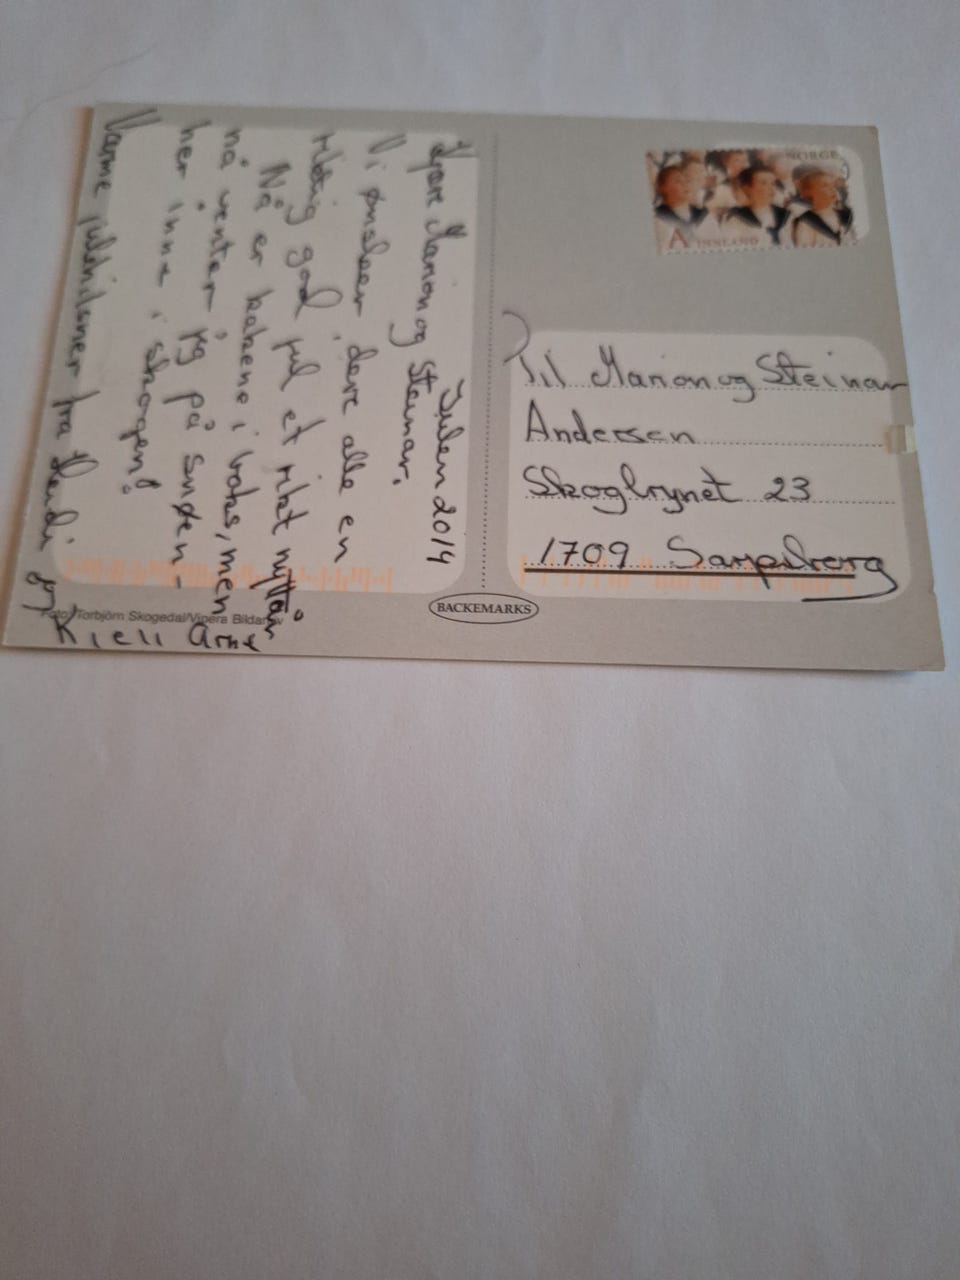 Julen 2014
Kjære Marion og Steinar.
Vi ønsker dere alle en
riktig god jul et rikt nyttår
Nå er kakene i boks, men
nå venter jeg på snøen -
her inne i skogen!
Varme julehilsner fra Heidi og
Kjell Arne
Foto: Torbjörn Skogedal/Vipera Bildarkiv
BACKEMARKS
NORGE
A INNLAND
Til Marion og Steinar
Andersen
Skogbrynet 23
1709 Sarpsborg